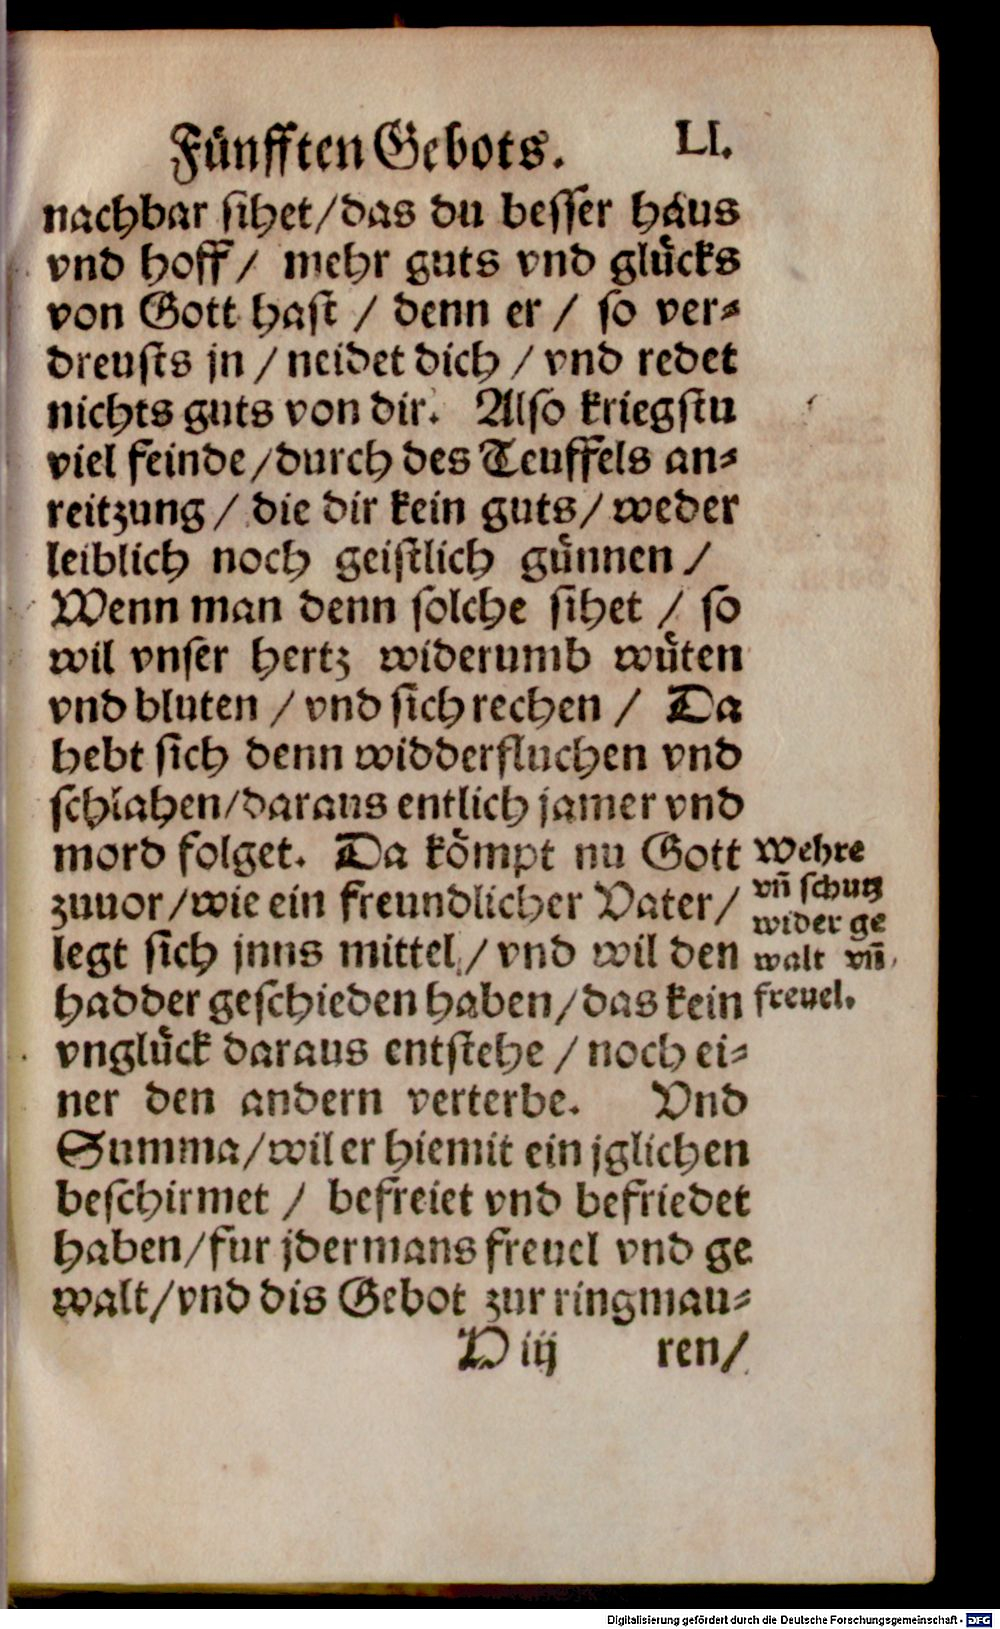 Fünfften Gebots. LI.
nachbar sihet/das du besser haus
vnd hoff/ mehr guts vnd glücks
von Gott hast / denn er / so ver⸗
dreusts jn / neidet dich / vnd redet
nichts guts von dir. Also kriegstu
viel feinde/durch des Teuffels an⸗
reitzung / die dir kein guts/ weder
leiblich noch geistlich günnen /
Wenn man denn solche sihet / so
wil vnser hertz widerumb wüten
vnd bluten / vnd sich rechen / Da
hebt sich denn widderfluchen vnd
schlahen/daraus entlich jamer vnd
mord folget. Da kömpt nu Gott
zuuor/wie ein freundlicher Vater/
legt sich jnns mittel / vnd wil den
hadder geschieden haben/das kein
vnglück daraus entstehe / noch ei⸗
ner den andern verterbe. Vnd
Summa/wil er hiemit ein jglichen
beschirmet / befreiet vnd befriedet
haben/fur jdermans freuel vnd ge
walt/vnd dis Gebot zur ringmau⸗
iij ren/
Wehre
vñ schutz
wider ge
walt vñ
freuel.
Digitalisierung gefördert durch die Deutsche Forschungsgemeinschaft - DFG